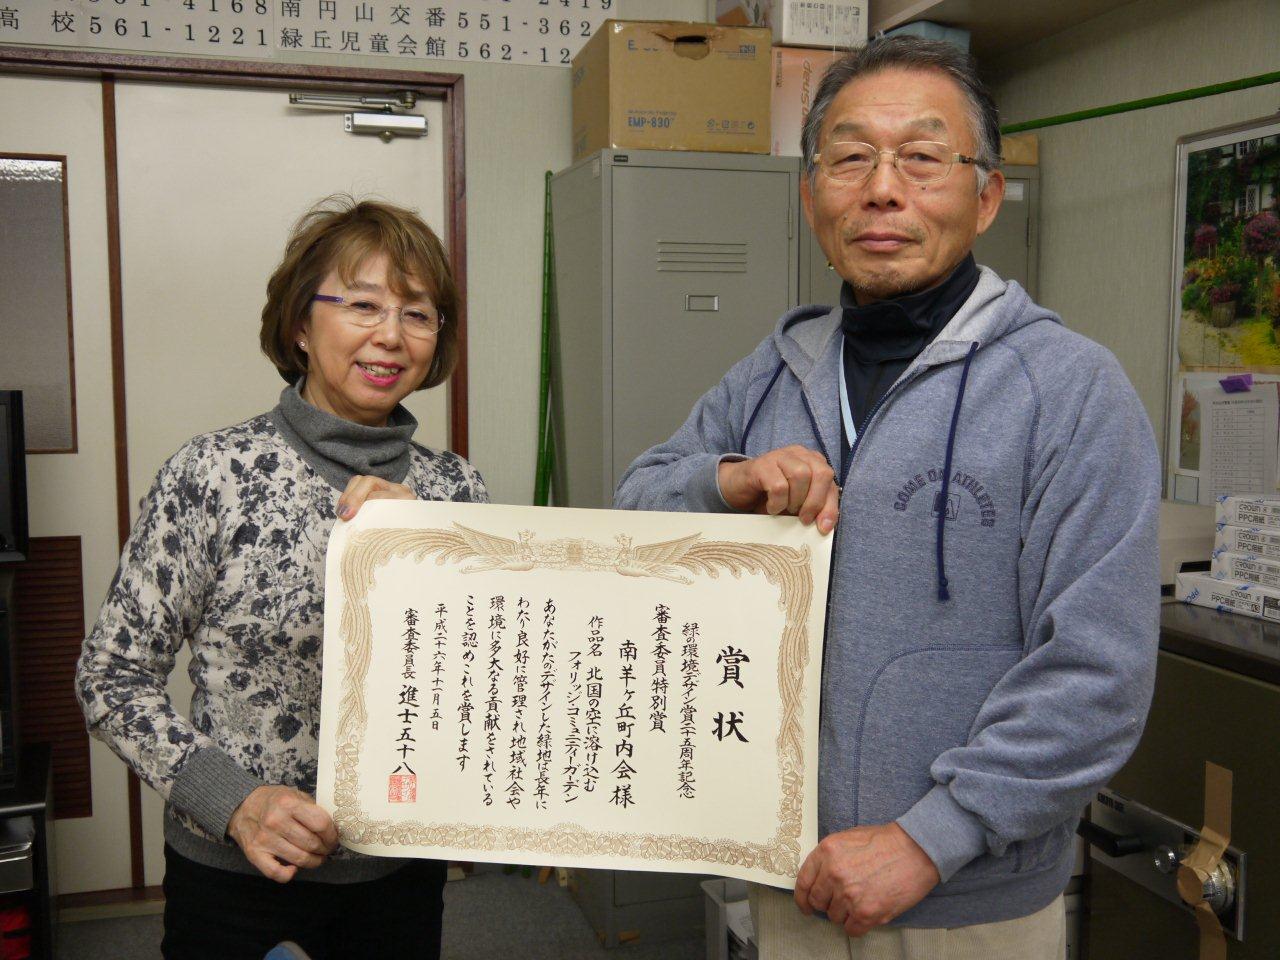 高校 561-1221
南円山交番 551-362
緑丘児童会館 562-12
EMP-830
COME ON ATHLETES
賞状
緑の環境デザイン賞二十五周年記念
審査委員特別賞
南羊ヶ丘町内会様
作品名 北国の空に溶け込む
フォリッジ・コミュニティーガーデン
あなたがたのデザインした緑地は長年に
わたり良好に管理され地域社会や
環境に多大なる貢献をされている
ことを認めこれを賞します
平成二十六年十一月五日
審査委員長 進士五十八
CROWN
PPC用紙
CROWN
PPC用紙
CROWN
PPC用紙
CROWN
PPC用紙 A3